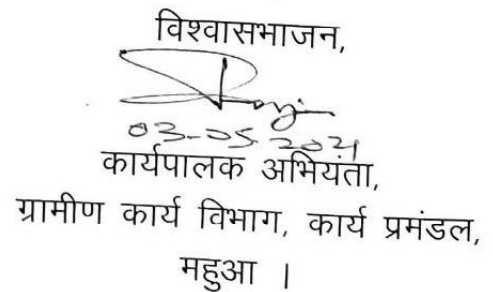 विश्वासभाजन,
03-05-2021
कार्यपालक अभियंता,
ग्रामीण कार्य विभाग, कार्य प्रमंडल,
महुआ ।